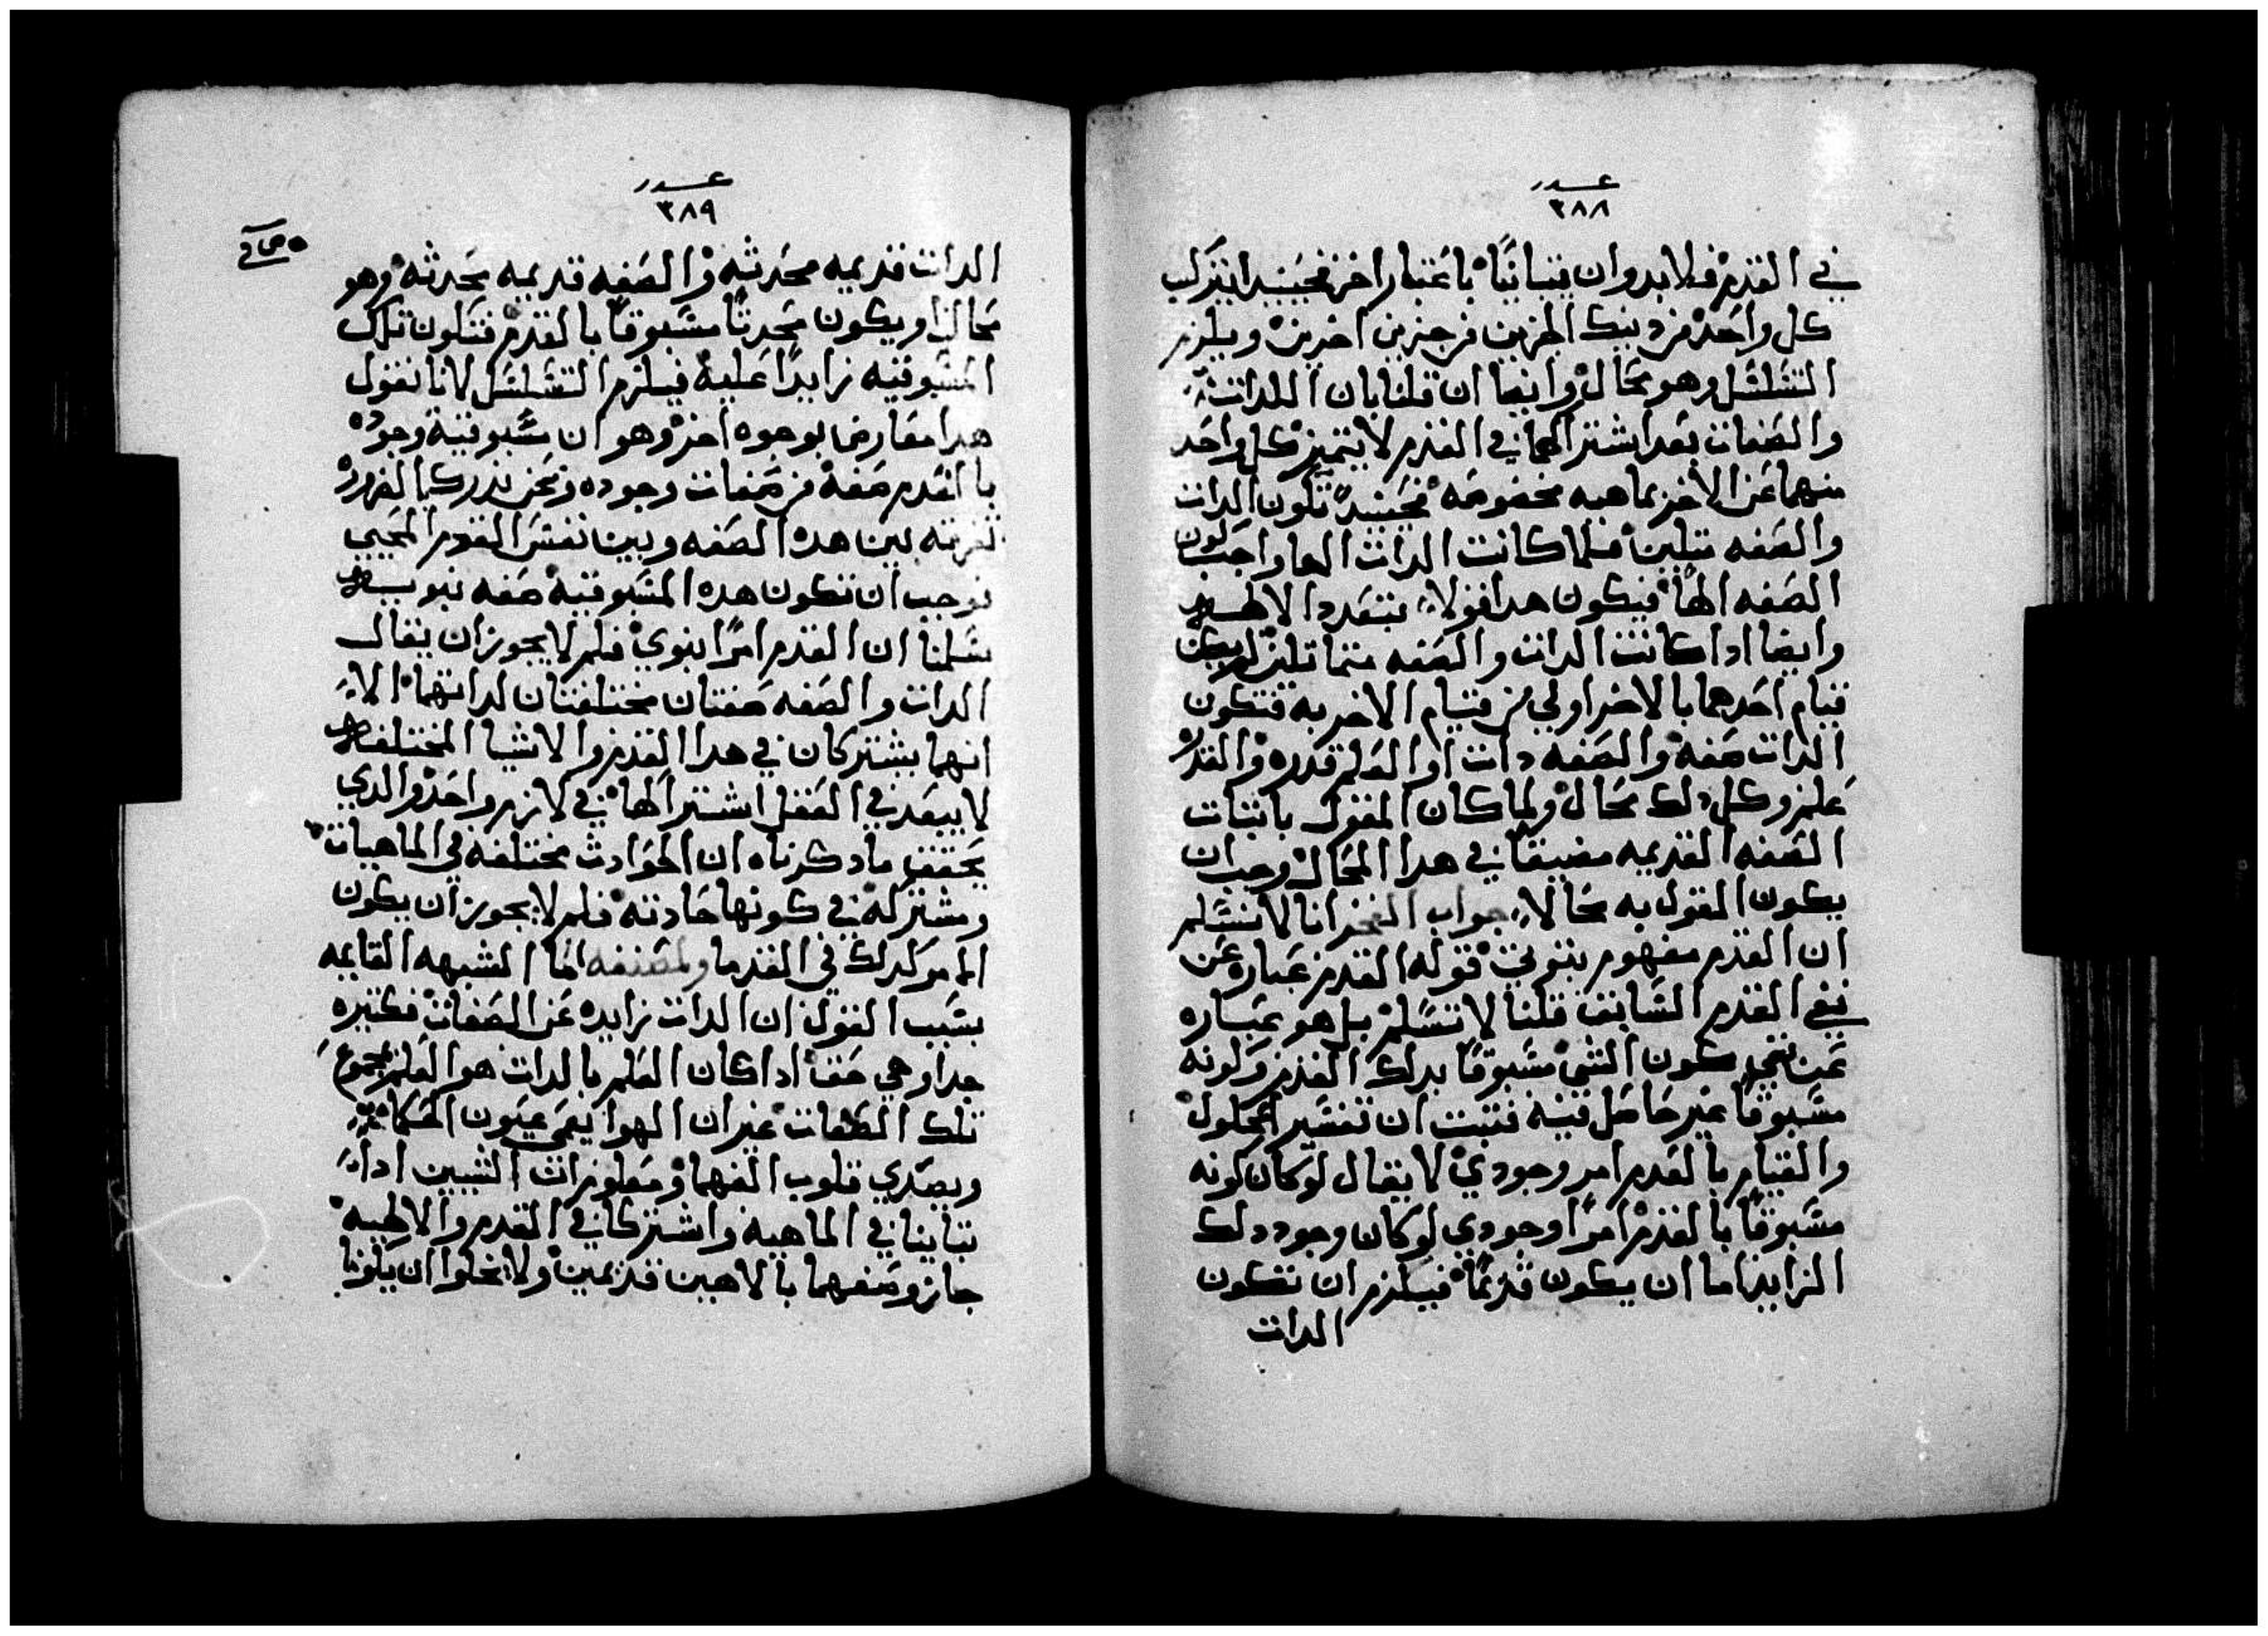 عدد
٣٨٨
في القدم فلا بد وان يتباينا باعتبار اخر فحينيد يتركب
كل واحد من دينك الجزين من جزين اخرين ويلزم
التسلسل وهو محال وايضا ان قلنا بان الدات
والصفات بعد اشتراكهما في القدم لا يتميز كل واحد
منهما عن الاخر بماهيه مخصوصه فحينيد تكون الدات
والصفه مثلين فلما كانت الدات الها واجب كون
الصفه الها فيكون هدا قولا بتعدد الالهه
وايضا ادا كانت الدات والصفه متماثلين لم يكن
قيام احدهما بالاخر اولي من قيام الاخر به فتكون
الدات صفة والصفه دات او العلم قدره والقدره
علم وكل دلك محال ولما كان القول باثبات
الصفه القديمه مفضيا في هدا المحال وجب ان
يكون القول به محالا جواب الفخر انا لا نسلم
ان القدم مفهوم ثبوتي قوله القدم عباره عن
نفي القدم السابق قلنا لا نسلم بل هو عباره
عن نفي كون الشي مسبوقا بدلك القدم وكونه
مسبوقا غير حاصل فيه فثبت ان تفسير الحلول
والقيام بالقدم امر وجودي لا يقال لو كان كونه
مسبوقا بالقدم امرا وجودي لو كان وجود دلك
الزايد اما ان يكون قديما فيلزم ان تكون
الدات
عدد
٣٨٩
الدات قديمه محدثه والصفه قديمه محدثه وهو
محال او يكون محدثا مسبوقا بالقدم فتكون تلك
المسبوقيه زايدا عليه فيلزم التسلسل لانا نقول
هدا معارض بوجوه اخر وهو ان مسبوقية وجوده
بالقدم صفة من صفات وجوده ونحن ندرك بالضرورة
تفرقه بين هده الصفه وبين نفس القدم المحيي
فوجب ان تكون هده المسبوقيه صفه ثبوتيه
سلمنا ان القدم امرا ثبوتي فلم لا يجوز ان يقال
الدات والصفه صفتان مختلفتان لداتهما الا
انهما يشتركان في هدا القدم والاشيا المختلفه
لا يبعد في العقل اشتراكها في لازم واحد والدي
يحقق ما دكرناه ان الحوادث مختلفه في الماهيات
ومشتركه في كونها حادثه فلم لا يجوز ان يكون
الامر كدلك في القدما ولمصنفه اما الشبهه القايمه
بسبب القول ان الدات زايده عن الصفات فكثيره
جدا وهي حق ادا كان العلم بالدات هو العلم بمجموع
تلك الصفات غير ان الهوا يعمي عيون الحكما
ويصدي قلوب الفهما ومعلوم ان الشيين ادا
تباينا في الماهية واشتركا في القدم والالهيه
جاز وصفهما بالاهين قديمين ولا يخلوا ان يكونا